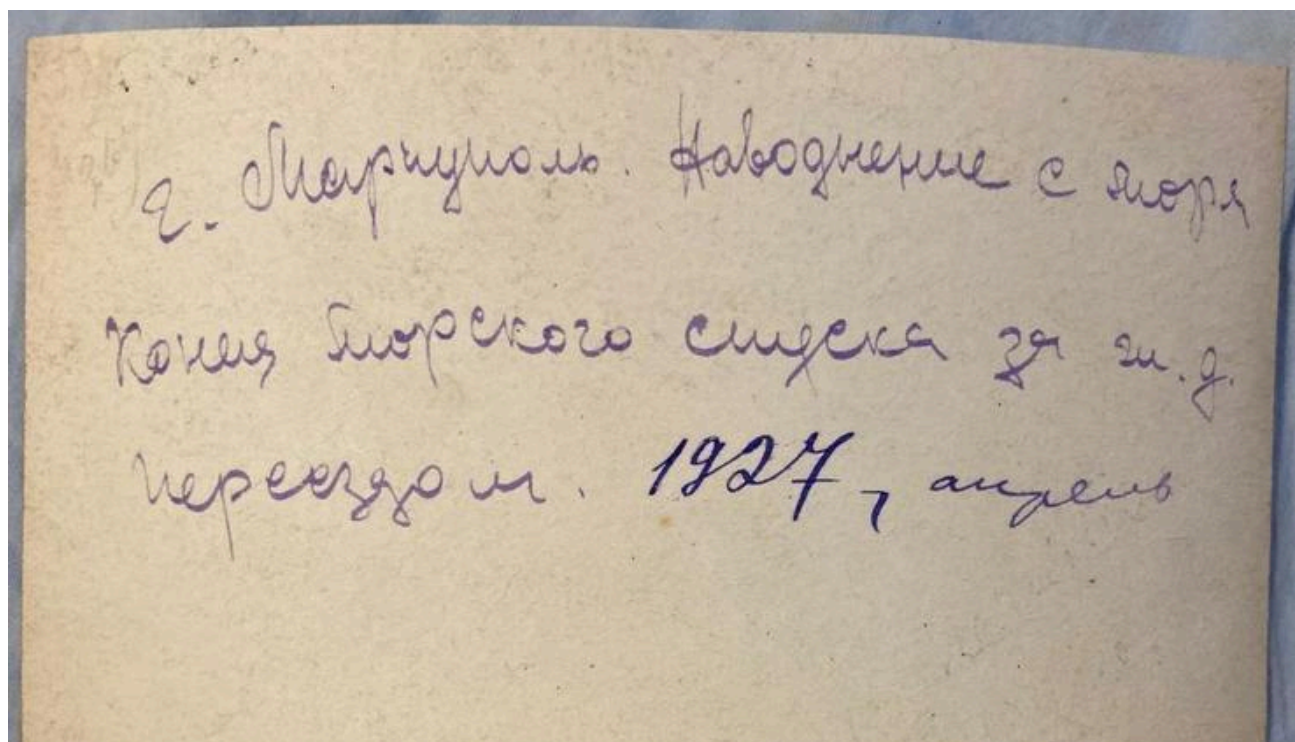 г. Мариуполь. Наводнение с моря
Конец Морского спуска за ж.д.
переездом. 1927, апрель